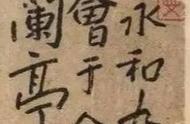 永和
會于
蘭亭